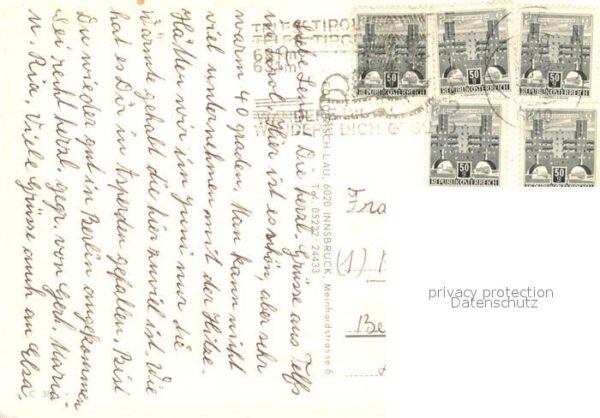 Liebe Leni
Dir herzl. Grüsse aus Telfs
Hier ist es schön, aber sehr
warm 40 graden. Man kann nicht
viel unternehmen mit der Hitze.
Hätten wir im Juni nur die
Wärme gehabt die hier zuviel ist. Wie
hat es Dir in Asperden gefallen. Bist
Du wieder gut in Berlin angekommen
Sei recht herzl. gegr von Gerh. Maria
u. Ria Viele Grüsse auch an Elsa.
TIROL
WANDERN
WANDERE DICH GESUND
LAU, 6020 INNSBRUCK, Meinhardstrasse 6
Tel. 05222 24433
50 g
REPUBLIK ÖSTERREICH
50 g
REPUBLIK ÖSTERREICH
50 g
REPUBLIK ÖSTERREICH
50 g
REPUBLIK ÖSTERREICH
50 g
REPUBLIK ÖSTERREICH
Fra
(1)
Be
privacy protection
Datenschutz